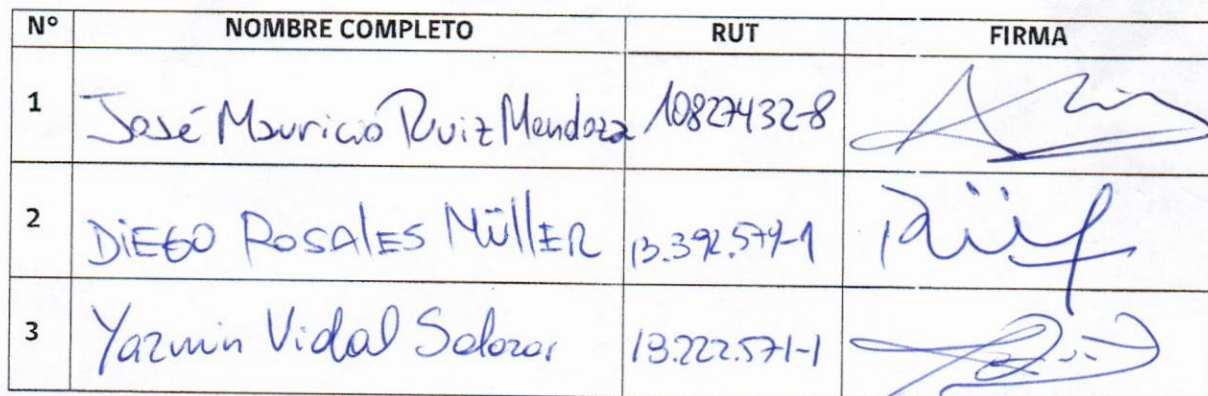 N° NOMBRE COMPLETO RUT FIRMA
1 José Mauricio Ruiz Mendoza 10827432-8
2 DIEGO ROSALES MÜLLER 13.392.579-1
3 Yazmin Vidal Salazar 13.222.571-1